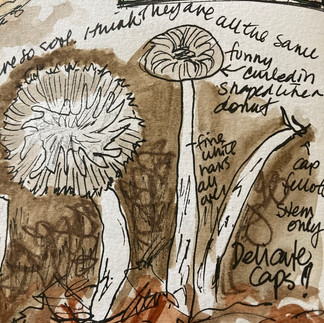 are so sore I think They are all the same
funny
curled in
shaped like a
donut
fine
white
hairs
all
over
cap
fell off
stem
only
Delicate
Caps!!